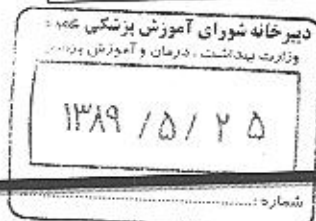 دبیرخانه شورای آموزش پزشکی
وزارت بهداشت ، درمان و آموزش پزشکی
۱۳۸۹ / ۵ / ۲ ۵
شماره :